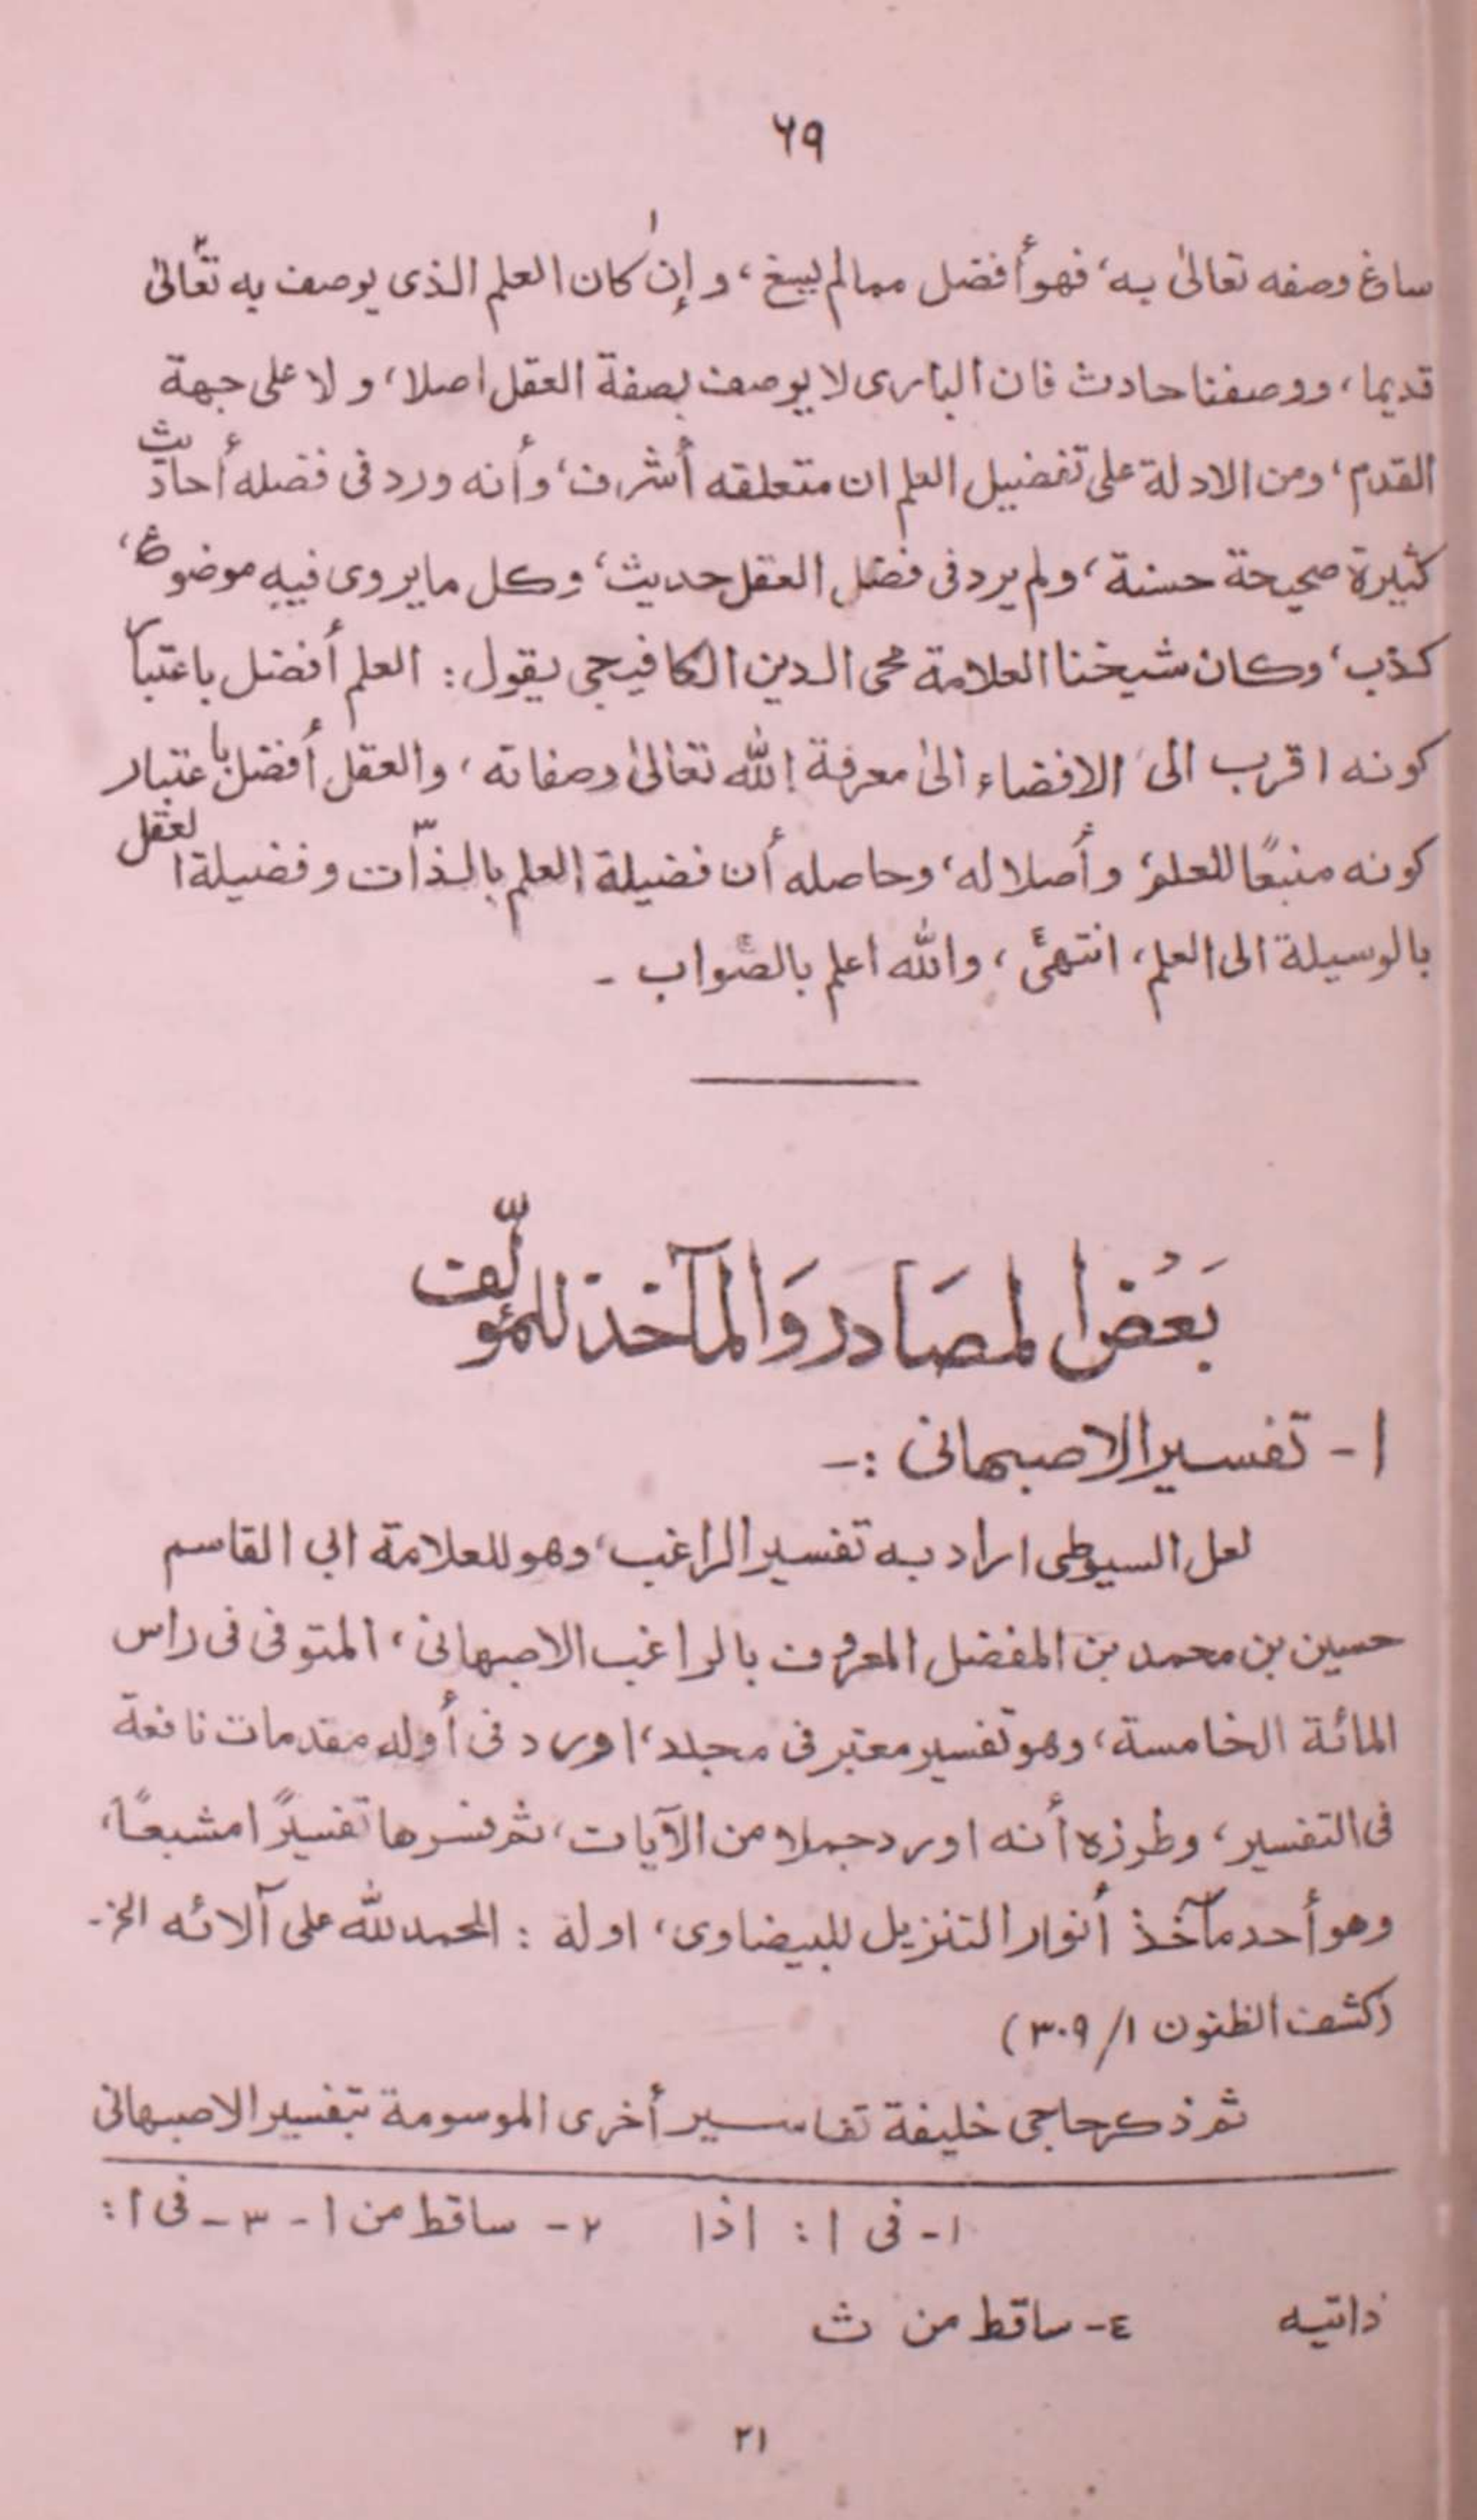 ٦٩
ساغ وصفه تعالىٰ به، فهو أفضل مما لم يسغ، و إن١ كان العلم الذى يوصف به تعالىٰ٢
قديما، ووصفنا حادث فان البارى لا يوصف بصفة العقل اصلا، و لا على جهة
القدم، ومن الادلة على تفضيل العلم ان متعلقه أشرف، وأنه ورد فى فضله أحاديث
كثيرة صحيحة حسنة، ولم يرد فى فضل العقل حديث، وكل ما يروى فيه موضوع،
كذب، وكان شيخنا العلامة محى الدين الكافيجى يقول: العلم أفضل باعتبار
كونه اقرب الى الافضاء الىٰ معرفة الله تعالىٰ وصفاته، والعقل أفضل باعتبار
كونه منبعًا للعلم، وأصلا له، وحاصله أن فضيلة العلم بالذّات٣ و فضيلة العقل
بالوسيلة الى العلم، انتهىٰ٤، والله اعلم بالصّواب -
بَعْضُ المصَادر وَالمآخذ للمؤلّف
١- تفسير الاصبهانى :-
لعل السيوطى اراد به تفسير الراغب، وهو للعلامة ابى القاسم
حسين بن محمد بن المفضل المعروف بالراغب الاصبهانى، المتوفى فى راس
المائة الخامسة، وهو تفسير معتبر فى مجلد، اورد فى أوله مقدمات نافعة
فى التفسير، وطرزه أنه اورد جملا من الآيات، ثم فسرها تفسيرًا مشبعًا،
وهو أحد مآخذ أنوار التنزيل للبيضاوى، اوله : الحمد لله على آلائه الخ-
(كشف الظنون ١/ ٣٠٩)
ثم ذكر حاجى خليفة تفاسير أخرى الموسومة بتفسير الاصبهانى
١- فى ا : اذا ٢- ساقط من ا - ٣- فى ا :
ذاتيه ٤- ساقط من ث
٢١